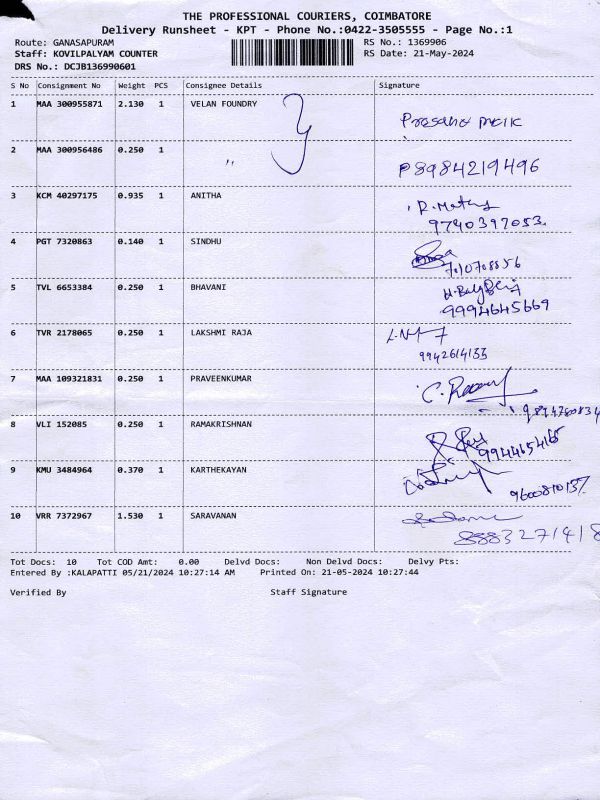 THE PROFESSIONAL COURIERS, COIMBATORE
Delivery Runsheet - KPT - Phone No.:0422-3505555 - Page No.:1
Route: GANASAPURAM RS No.: 1369906
Staff: KOVILPALYAM COUNTER RS Date: 21-May-2024
DRS No.: DCJB136990601
S No Consignment No Weight PCS Consignee Details Signature
1 MAA 300955871 2.130 1 VELAN FOUNDRY
2 MAA 300956486 0.250 1 ,, P8984219496
3 KCM 40297175 0.935 1 ANITHA
9740397053.
4 PGT 7320863 0.140 1 SINDHU
5 TVL 6653384 0.250 1 BHAVANI
9994645669
6 TVR 2178065 0.250 1 LAKSHMI RAJA
9942614133
7 MAA 109321831 0.250 1 PRAVEENKUMAR
8 VLI 152085 0.250 1 RAMAKRISHNAN
9 KMU 3484964 0.370 1 KARTHEKAYAN
10 VRR 7372967 1.530 1 SARAVANAN
Tot Docs: 10 Tot COD Amt: 0.00 Delvd Docs: Non Delvd Docs: Delvy Pts:
Entered By :KALAPATTI 05/21/2024 10:27:14 AM Printed On: 21-05-2024 10:27:44
Verified By Staff Signature